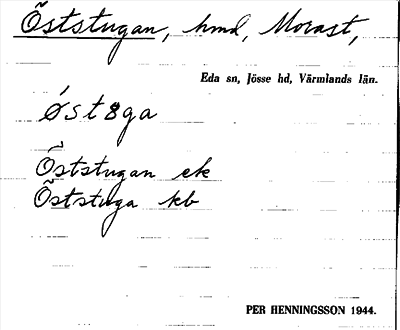 Öststugan, hmd, Morast,
Eda sn, Jösse hd, Värmlands län.
østȣga
Öststugan ek
Öststuga kb
PER HENNINGSSON 1944.